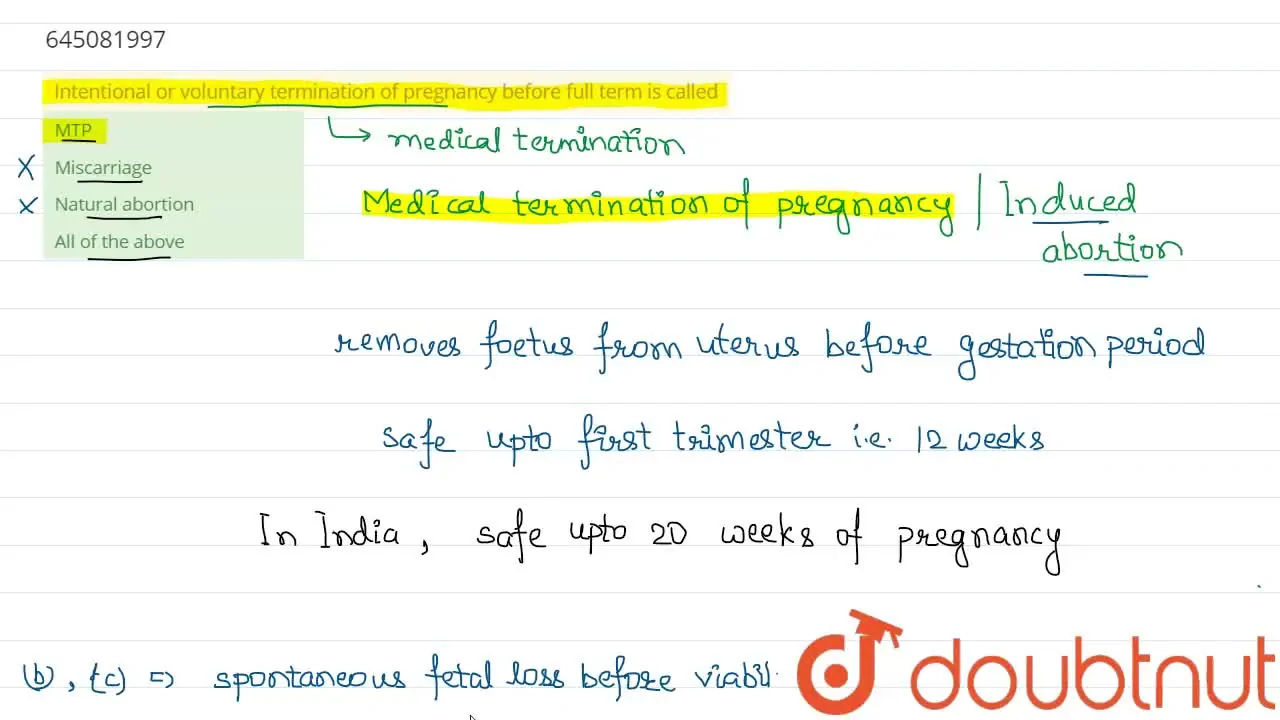 645081997
Intentional or voluntary termination of pregnancy before full term is called
MTP
medical termination
X Miscarriage
X Natural abortion
Medical termination of pregnancy | Induced
abortion
All of the above
removes foetus from uterus before gestation period
safe upto first trimester i.e. 12 weeks
In India, safe upto 20 weeks of pregnancy
(b), (c) => spontaneous fetal loss before viabil
doubtnut